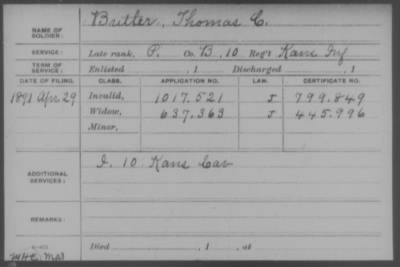 NAME OF SOLDIER: Butler, Thomas C.
SERVICE: Late rank, P. Co. B, 10 Reg't Kans Inf
TERM OF SERVICE: Enlisted , 1 Discharged , 1
DATE OF FILING. CLASS. APPLICATION NO. LAW. CERTIFICATE NO.
1891 Apr 29 Invalid, 1017.521 J 799.849
Widow, 637.363 J 445.996
Minor,
ADDITIONAL SERVICES: I. 10 Kans Cav
REMARKS:
Died , 1 , at